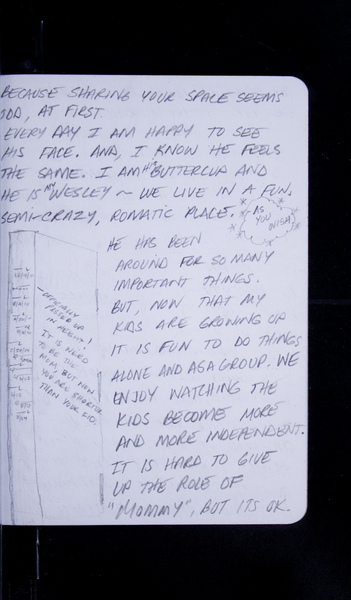 BECAUSE SHARING YOUR SPACE SEEMS
ODD, AT FIRST.
EVERY DAY I AM HAPPY TO SEE
HIS FACE. AND, I KNOW HE FEELS
THE SAME. I AM HIS BUTTERCUP AND
HE IS MY WESLEY ~ WE LIVE IN A FUN,
SEMI-CRAZY, ROMATIC PLACE.
AS
YOU
WISH
HE HAS BEEN
AROUND FOR SO MANY
IMPORTANT THINGS.
BUT, NOW THAT MY
KIDS ARE GROWING UP
IT IS FUN TO DO THINGS
ALONE AND AS A GROUP. WE
ENJOY WATCHING THE
KIDS BECOME MORE
AND MORE INDEPENDENT.
IT IS HARD TO GIVE
UP THE ROLE OF
"MOMMY", BUT ITS OK.
- OFFICIALLY
PASSED UP
IN HEIGHT!
IT IS WEIRD
TO BE THE
MOM, BUT NOW
YOU ARE SHORTER
THAN YOUR KID.